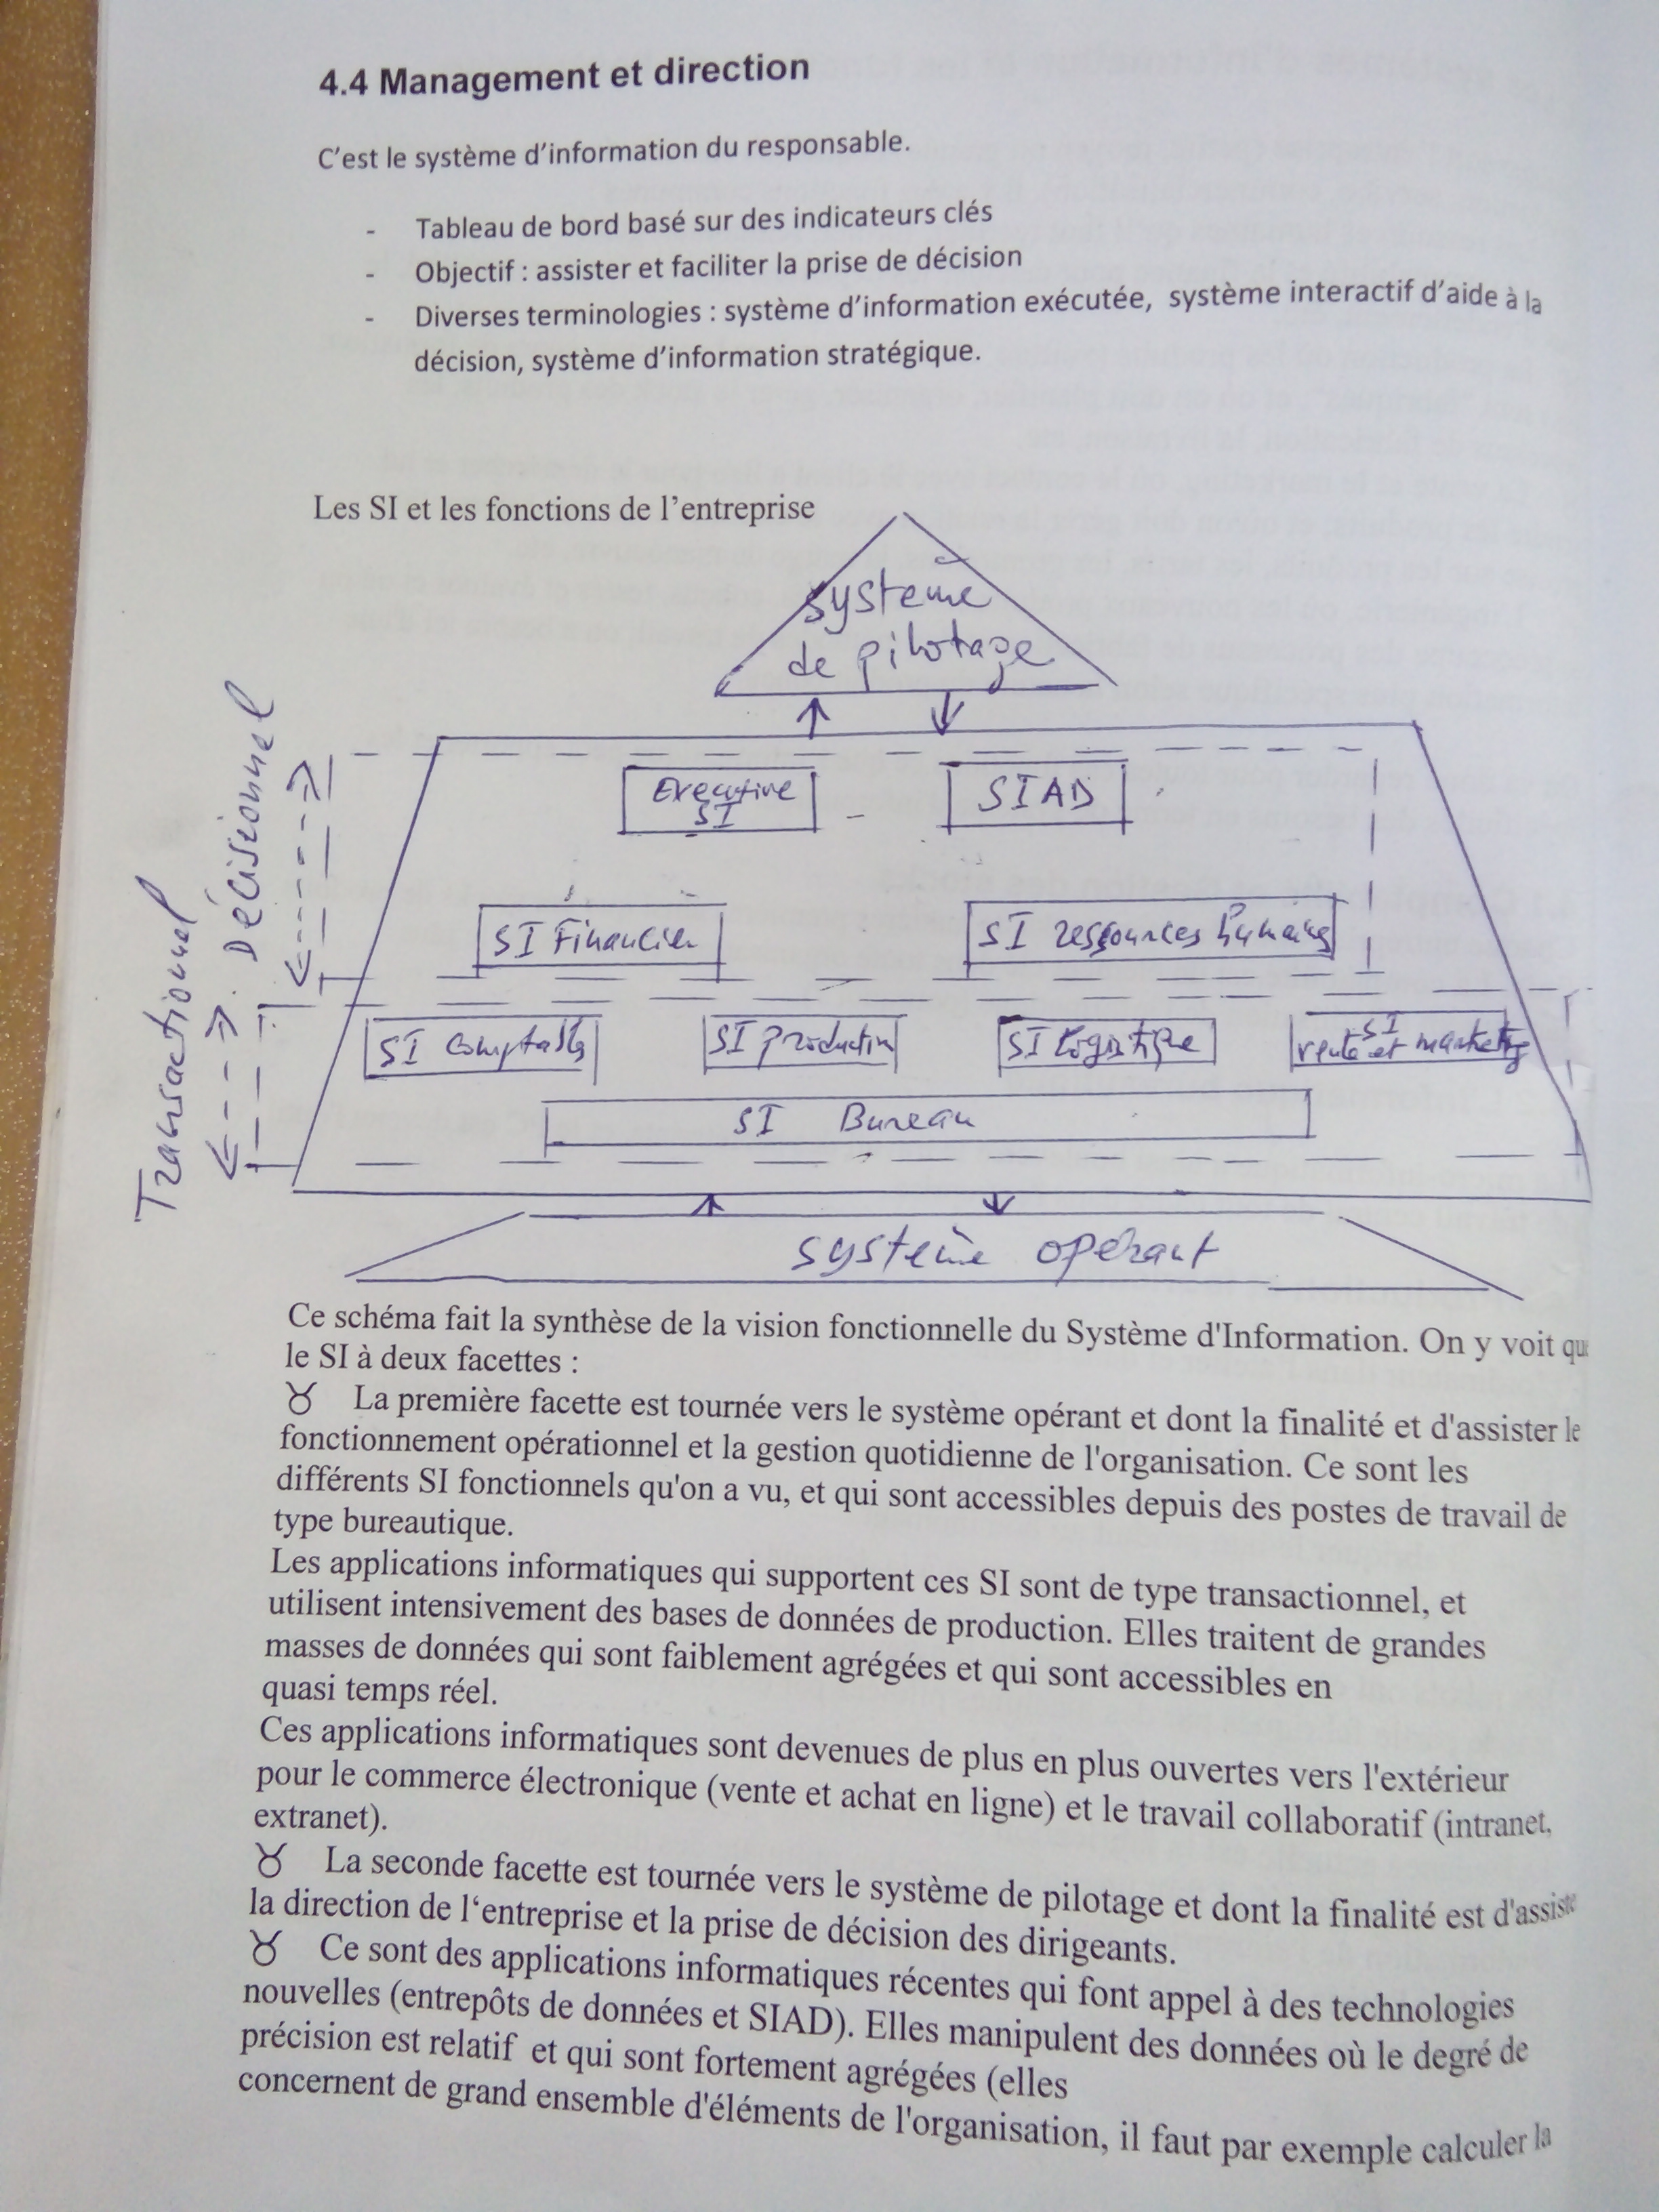 4.4 Management et direction
C'est le système d'information du responsable.
- Tableau de bord basé sur des indicateurs clés
- Objectif : assister et faciliter la prise de décision
- Diverses terminologies : système d'information exécutée, système interactif d'aide à la
décision, système d'information stratégique.
Les SI et les fonctions de l'entreprise
système
de pilotage
Décisionnel
Executive
SI
SIAD
SI Financier
SI ressources humaines
Transactionnel
SI Comptable
SI production
SI Logistique
SI
vente et marketing
SI Bureau
système opérant
Ce schéma fait la synthèse de la vision fonctionnelle du Système d'Information. On y voit que
le SI à deux facettes :
♉ La première facette est tournée vers le système opérant et dont la finalité et d'assister le
fonctionnement opérationnel et la gestion quotidienne de l'organisation. Ce sont les
différents SI fonctionnels qu'on a vu, et qui sont accessibles depuis des postes de travail de
type bureautique.
Les applications informatiques qui supportent ces SI sont de type transactionnel, et
utilisent intensivement des bases de données de production. Elles traitent de grandes
masses de données qui sont faiblement agrégées et qui sont accessibles en
quasi temps réel.
Ces applications informatiques sont devenues de plus en plus ouvertes vers l'extérieur
pour le commerce électronique (vente et achat en ligne) et le travail collaboratif (intranet,
extranet).
♉ La seconde facette est tournée vers le système de pilotage et dont la finalité est d'assiste
la direction de l‘entreprise et la prise de décision des dirigeants.
♉ Ce sont des applications informatiques récentes qui font appel à des technologies
nouvelles (entrepôts de données et SIAD). Elles manipulent des données où le degré de
précision est relatif et qui sont fortement agrégées (elles
concernent de grand ensemble d'éléments de l'organisation, il faut par exemple calculer la